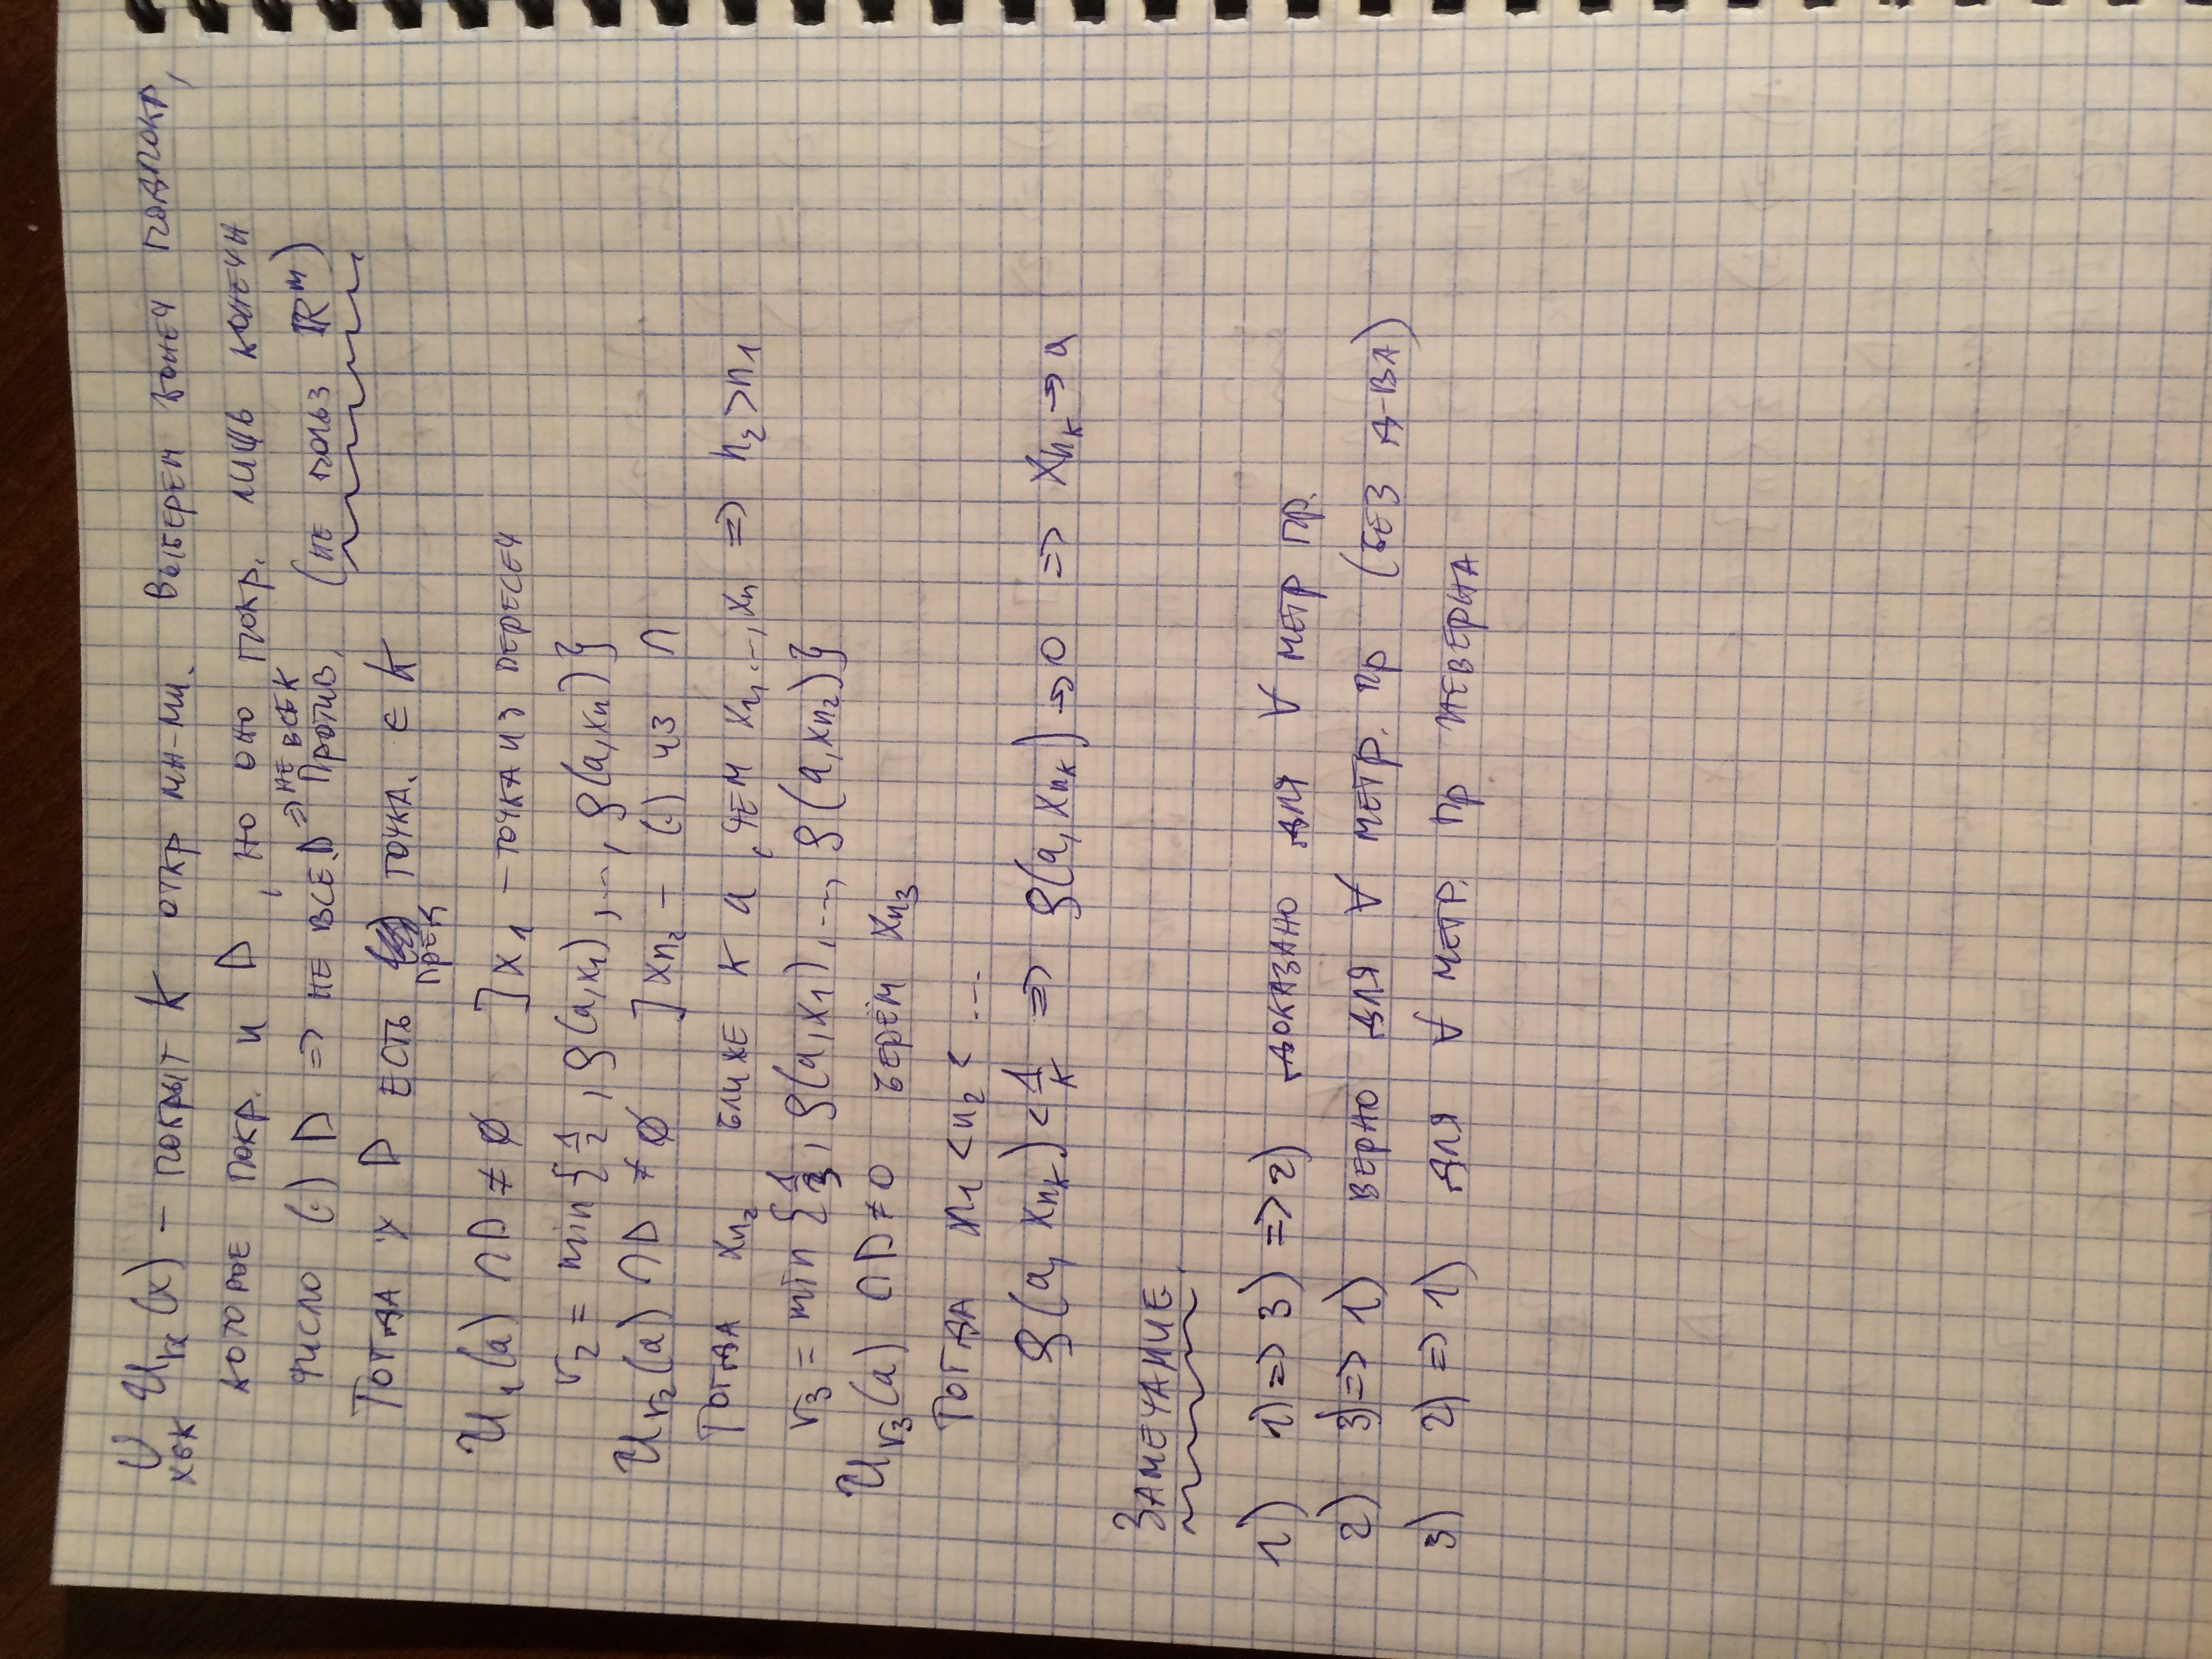 ∪ U_{r_x}(x) – покрыт K откр мн-ми. Выберем конеч подпокр,
x∈K
которое покр. и D, но оно покр. лишь конечн
число (·) D => не все D => не все K Против. (не польз ℝ^m)
Тогда у D есть точка. ∈ K
пред
U_1(a) ∩ D ≠ ∅ ] x_1 – точка из пересеч
r_2 = min{1/2, ρ(a,x_1), ..., ρ(a,x_n)}
U_{r_2}(a) ∩ D ≠ ∅ ] x_{n_2} – (·) из ∩
Тогда x_{n_2} ближе к a, чем x_1, ..., x_n => n_2 > n_1
r_3 = min{1/3, ρ(a,x_1), ..., ρ(a,x_{n_2})}
U_{r_3}(a) ∩ D ≠ 0 берём x_{n_3}
Тогда n_1 < n_2 < ...
ρ(a, x_{n_k}) < 1/k => ρ(a, x_{n_k}) → 0 => x_{n_k} → a
Замечание
1) 1) => 3) => 2) доказано для ∀ метр пр.
2) 3) => 1) верно для ∀ метр. пр (без д-ва)
3) 2) => 1) для ∀ метр. пр неверна